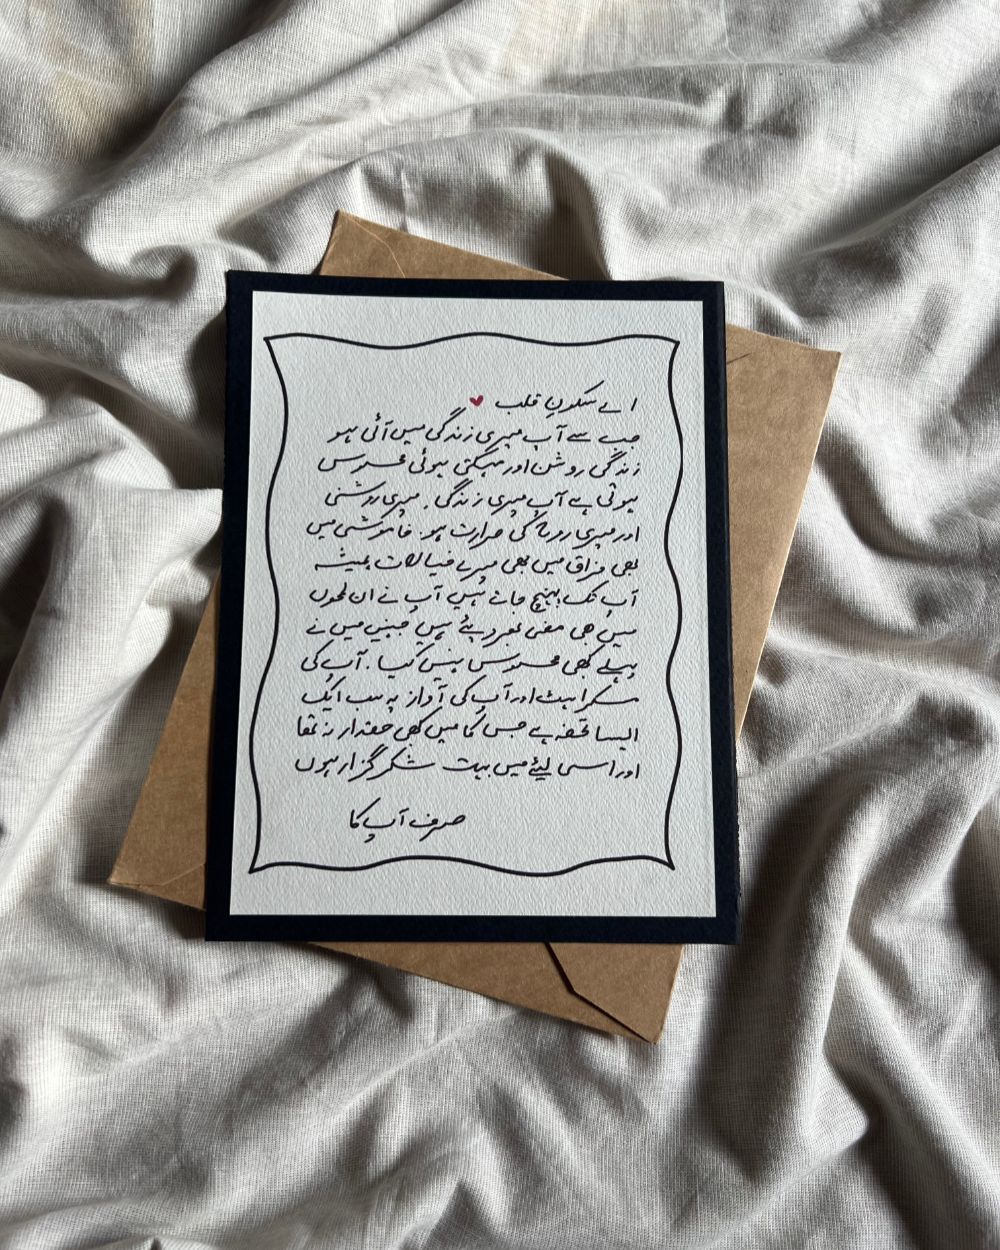 اے سکونِ قلب
جب سے آپ میری زندگی میں آئی ہو
زندگی روشن اور مہکتی ہوئی محسوس
ہوتی ہے آپ میری زندگی، میری روشنی
اور میری روح کی حرارت ہو۔ خاموشی میں
بھی فراق میں بھی میرے خیالات ہمیشہ
آپ تک پہنچ جاتے ہیں آپ نے ان لمحوں
میں بھی معنی بھر دیئے ہیں جنہیں میں نے
پہلے کبھی محسوس نہیں کیا۔ آپ کی
مسکراہٹ اور آپ کی آواز یہ سب ایک
ایسا تحفہ ہے جس کا میں کبھی حقدار نہ تھا
اور اسی لیئے میں بہت شکر گزار ہوں
صرف آپ کا